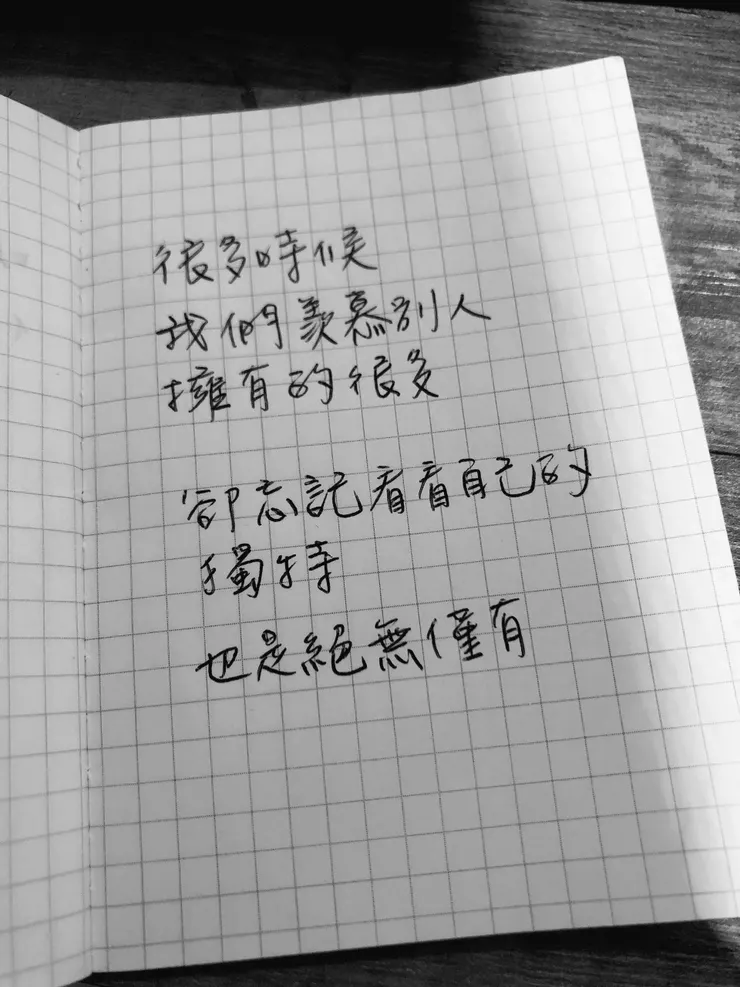 很多時候
我們羨慕別人
擁有的很多
卻忘記看看自己的
獨特
也是絕無僅有